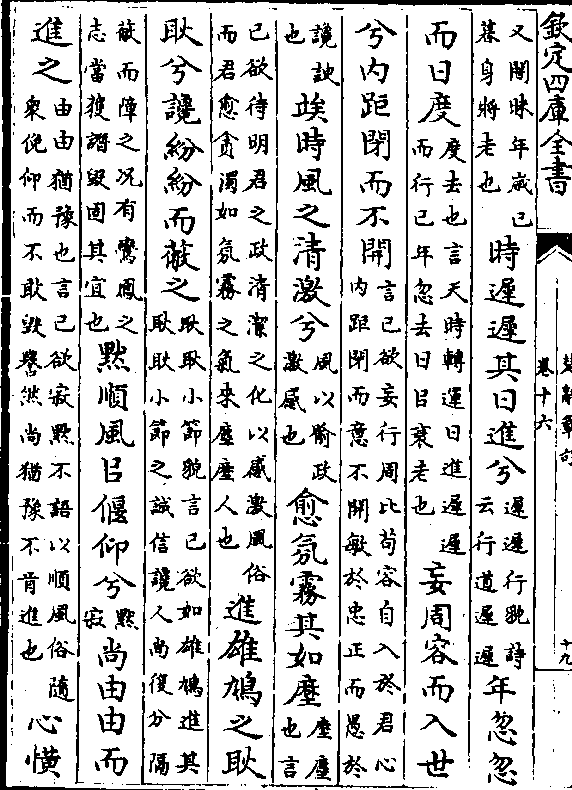 欽定四庫全書
楚辭章句
卷十六
十九
又闇昧年歲已
暮身將老也
時遲遲其日進兮
遲遲行貌詩
云行道遲遲
年忽忽
而日度
度去也言天時轉運日進遲遲
而行已年忽去日㠯衰老也
妄周容而入世
兮内距閉而不開
言已欲妄行周比苟容自入於君心
内距閉而意不開敏於忠正而愚於
讒諛
也
竢時風之清激兮
風以喻政
激感也
愈氛霧其如塺
塺塵
也言
已欲待明君之政清潔之化以感激風俗
而君愈貪濁如氛霧之氣來塵塵人也
進雄鳩之耿
耿兮讒紛紛而蔽之
耿耿小節貌言已欲如雄鳩進其
耿耿小節之誠信讒人尚復分隔
蔽而障之况有鸞鳳之
志當獲譖毀固其宜也
黙順風㠯偃仰兮
黙
寂
尚由由而
進之
由由猶豫也言已欲寂黙不語以順風俗隨
衆俛仰而不耿毀譽然尚猶豫不肯進也
心懭